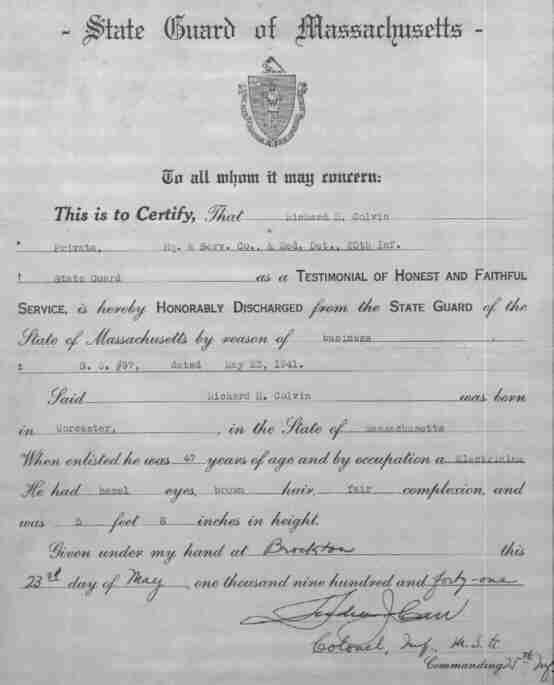 - State Guard of Massachusetts -
To all whom it may concern:
This is to Certify, That Richard H. Colvin
Private, Hq. & Serv. Co., & Med. Det., 20th Inf.
State Guard as a TESTIMONIAL OF HONEST AND FAITHFUL
SERVICE, is hereby HONORABLY DISCHARGED from the STATE GUARD of the
State of Massachusetts by reason of business
S. O. #97, dated May 23, 1941.
Said Richard H. Colvin was born
in Worcester, , in the State of Massachusetts
When enlisted he was 47 years of age and by occupation a Electrician
He had hazel eyes, brown hair, fair complexion, and
was 5 feet 8 inches in height.
Given under my hand at Brockton this
23rd day of May, one thousand nine hundred and forty-one
Carr
Colonel, Inf. M. S. G.
Commanding 25th Inf.